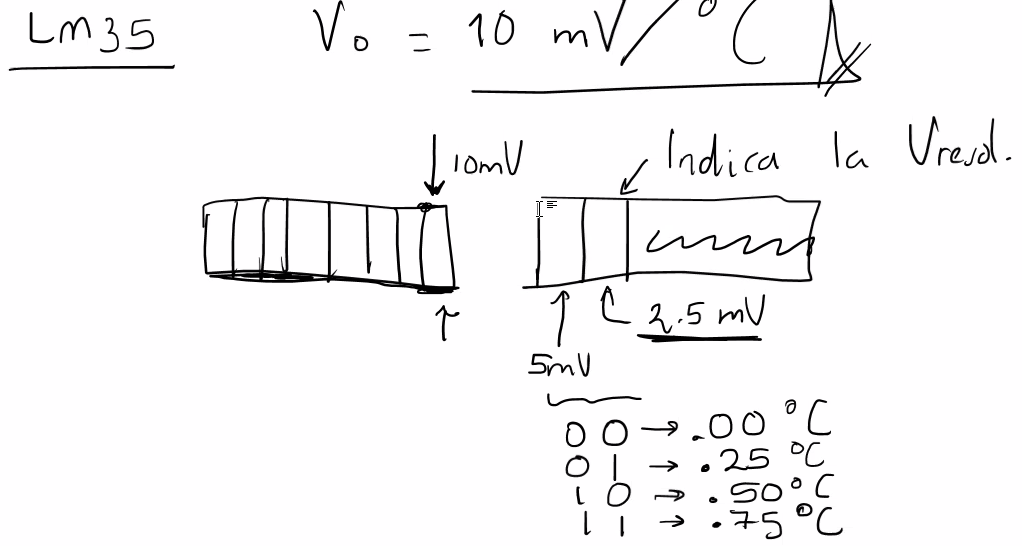 LM35 Vo = 10 mV/°C
10mV Indica la Vresol.
2.5 mV
5mV
00 → .00 °C
01 → .25 °C
10 → .50 °C
11 → .75 °C